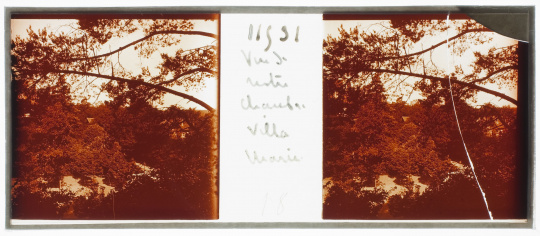 11931
Vue de
notre
chambre
Villa
Marie